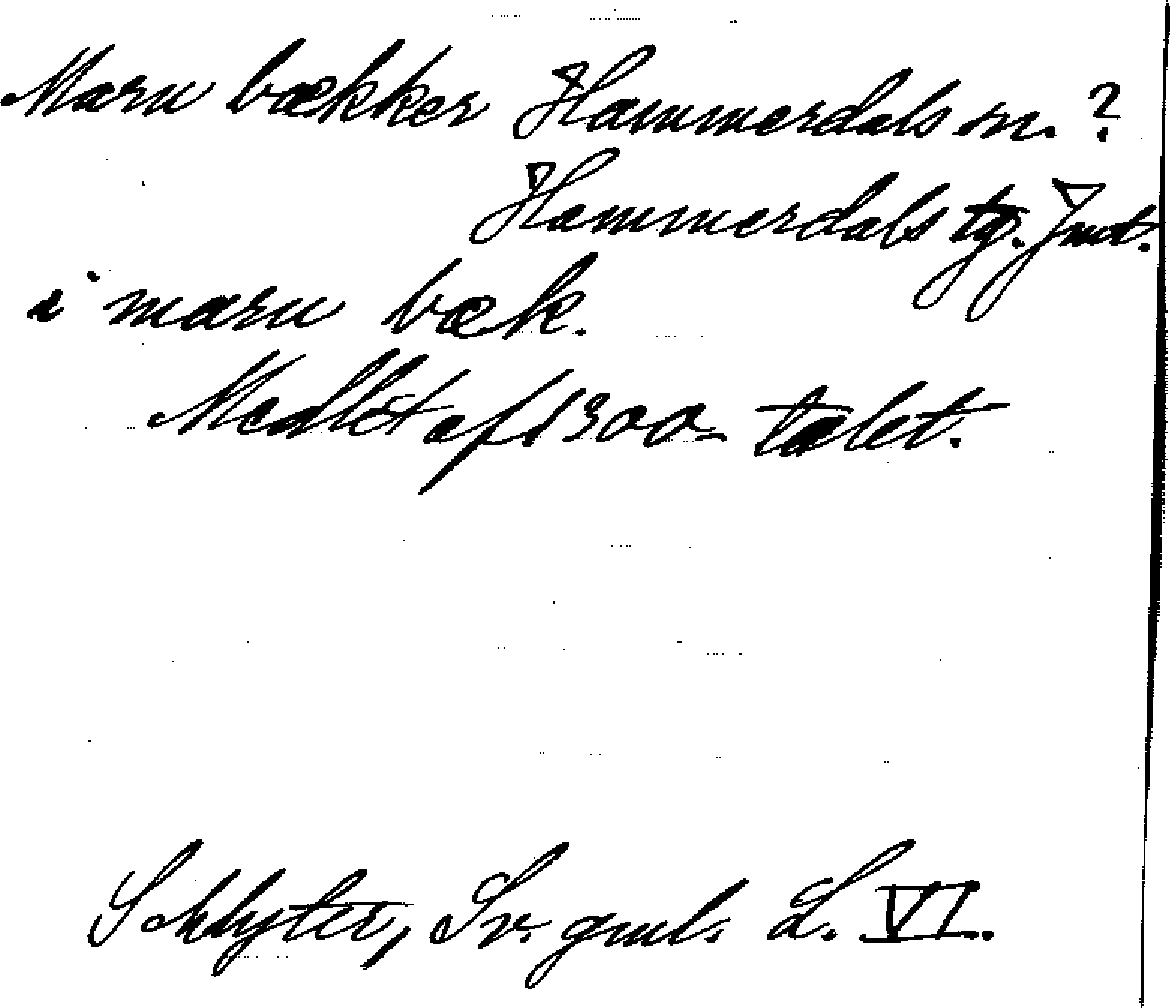 Maru bækker Hammerdals sn. ?
Hammerdals tg. Jmt.
i maru bæk.
Medlet af 1300-talet.
Schlyter, Sv. gml. L. VI.